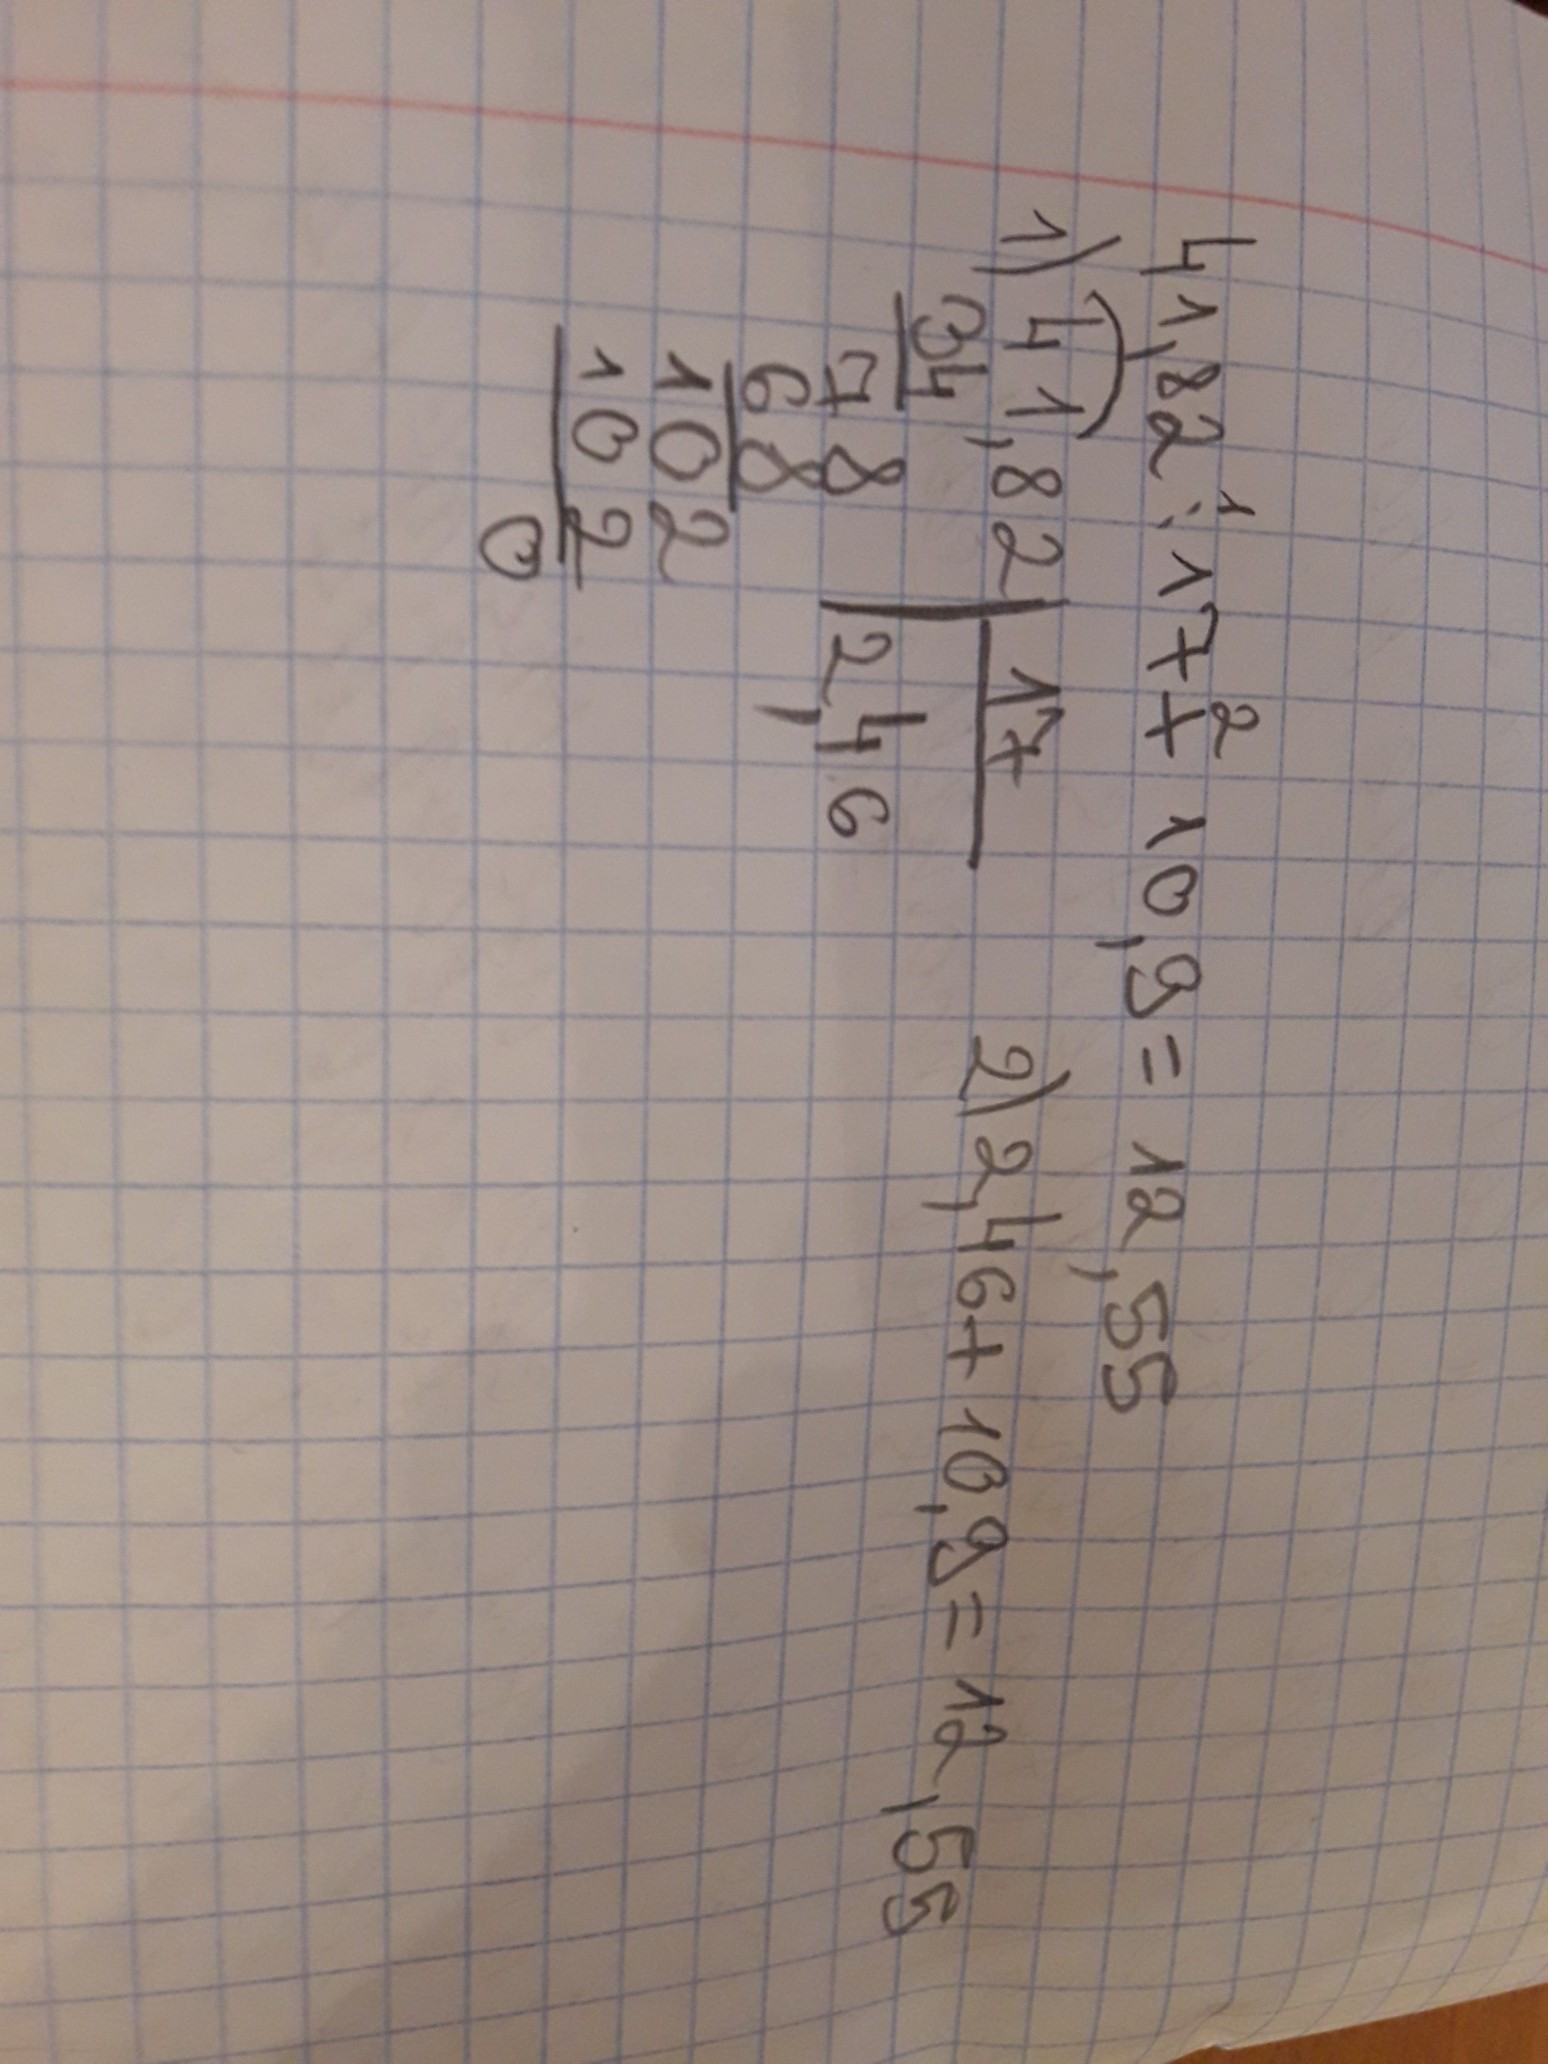 41,82 :¹ 17 +² 10,9 = 12,55
1) 41,82 | 17        2) 2,46 + 10,9 = 12,55
34 | 2,46
78
68
102
102
0